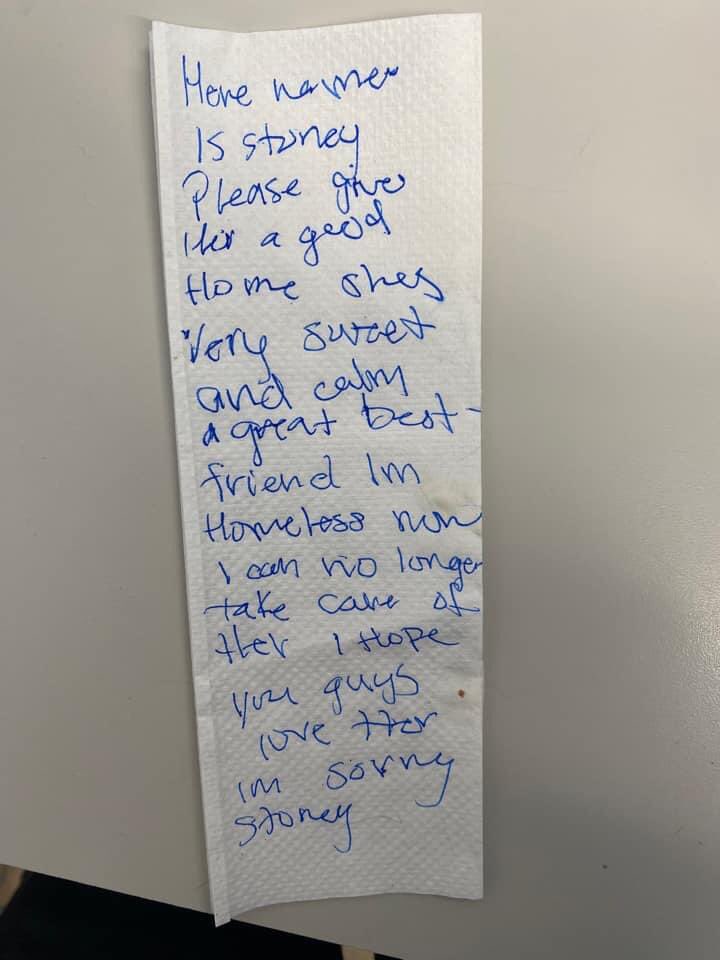 Here name
Is stoney
Please give
Her a good
Home shes
Very sweet
and calm
a great best
friend Im
Homeless now
I can no longer
take care of
Her I Hope
you guys
love Her
im sorry
stoney